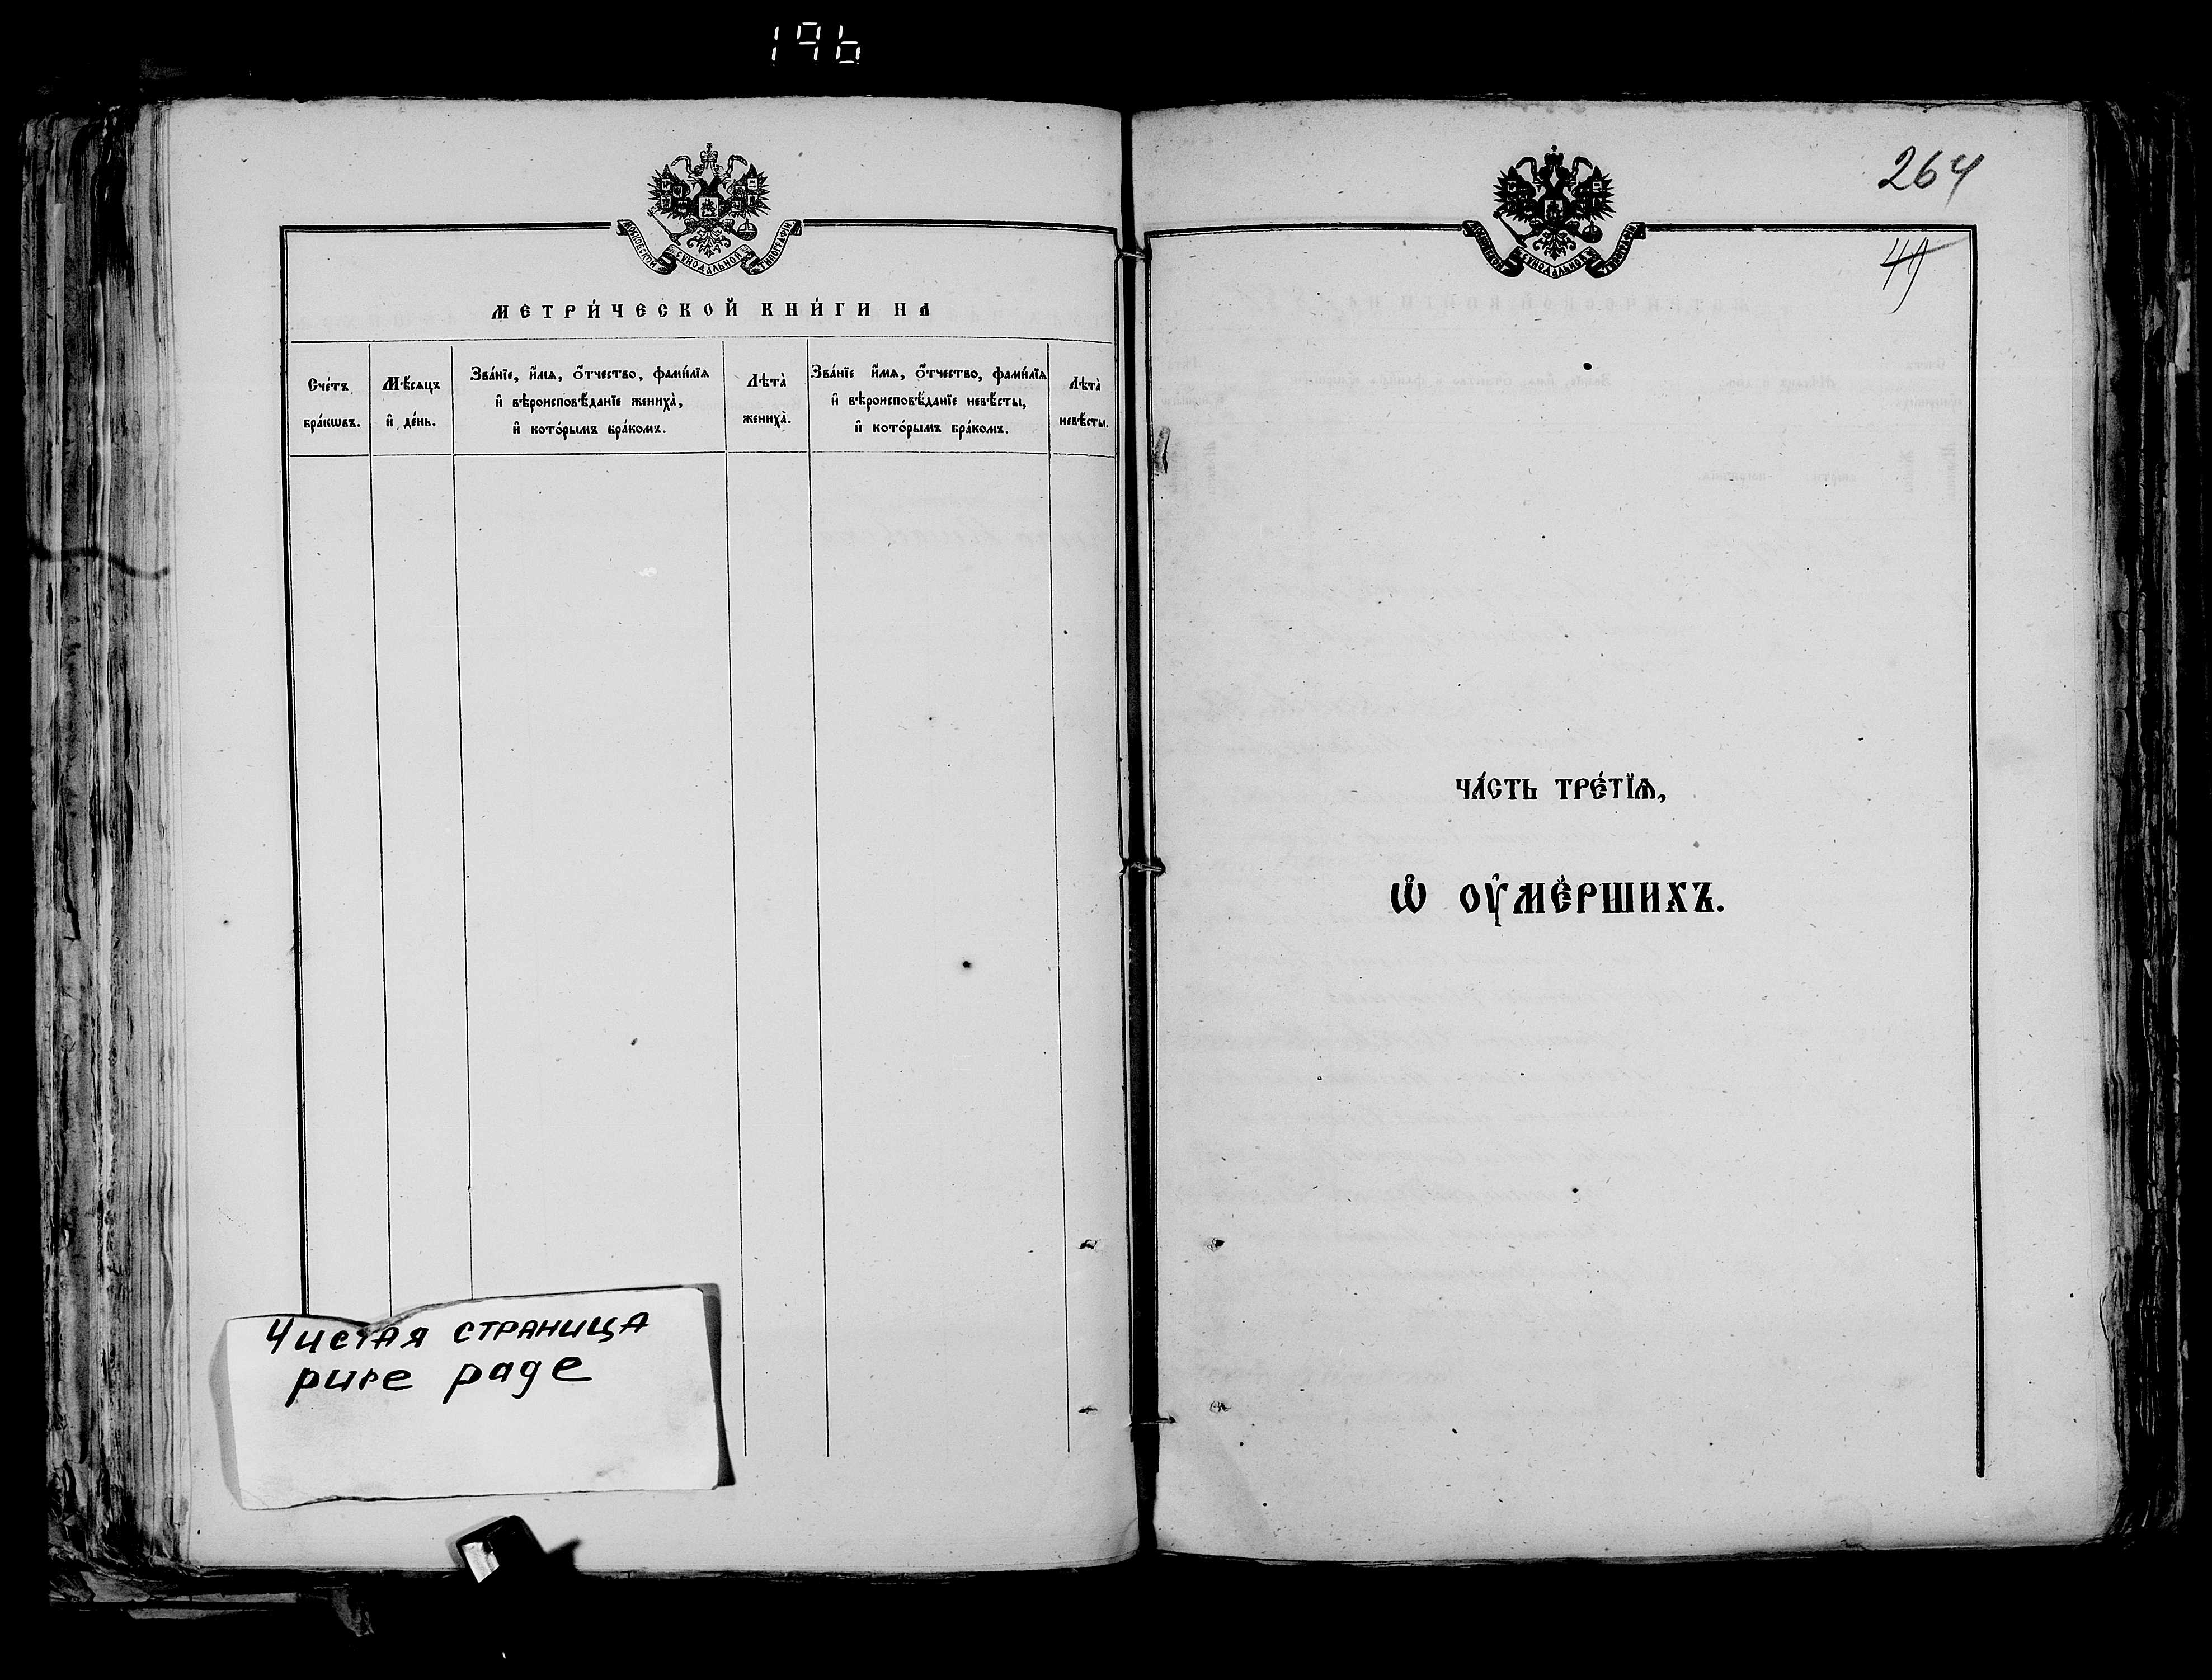 196
МОСКОВСКОЙ СѴНОДАЛЬНОЙ ТИПОГРАФІИ
МЕТРИ́ЧЕСКОЙ КНИ́ГИ НА
Сче́тъ бра́кѡвъ.
Мѣ́сяцъ и҆ де́нь.
Зва́нїе, и҆́мѧ, ѻ҆́тчество, фами́лїѧ
и҆ вѣроисповѣ́данїе женихà,
и҆ кото́рымъ бра́комъ.
Лѣтà женихà.
Зва́нїе и҆́мѧ, ѻ҆́тчество, фами́лїѧ
и҆ вѣроисповѣ́данїе невѣ́сты,
и҆ кото́рымъ бра́комъ.
Лѣтà невѣ́сты.
Чистая страница
pure page
264
МОСКОВСКОЙ СѴНОДАЛЬНОЙ ТИПОГРАФІИ
49
ЧА́СТЬ ТРЕ́ТЇѦ,
Ѽ ОУ҆МЕ́РШИХЪ.